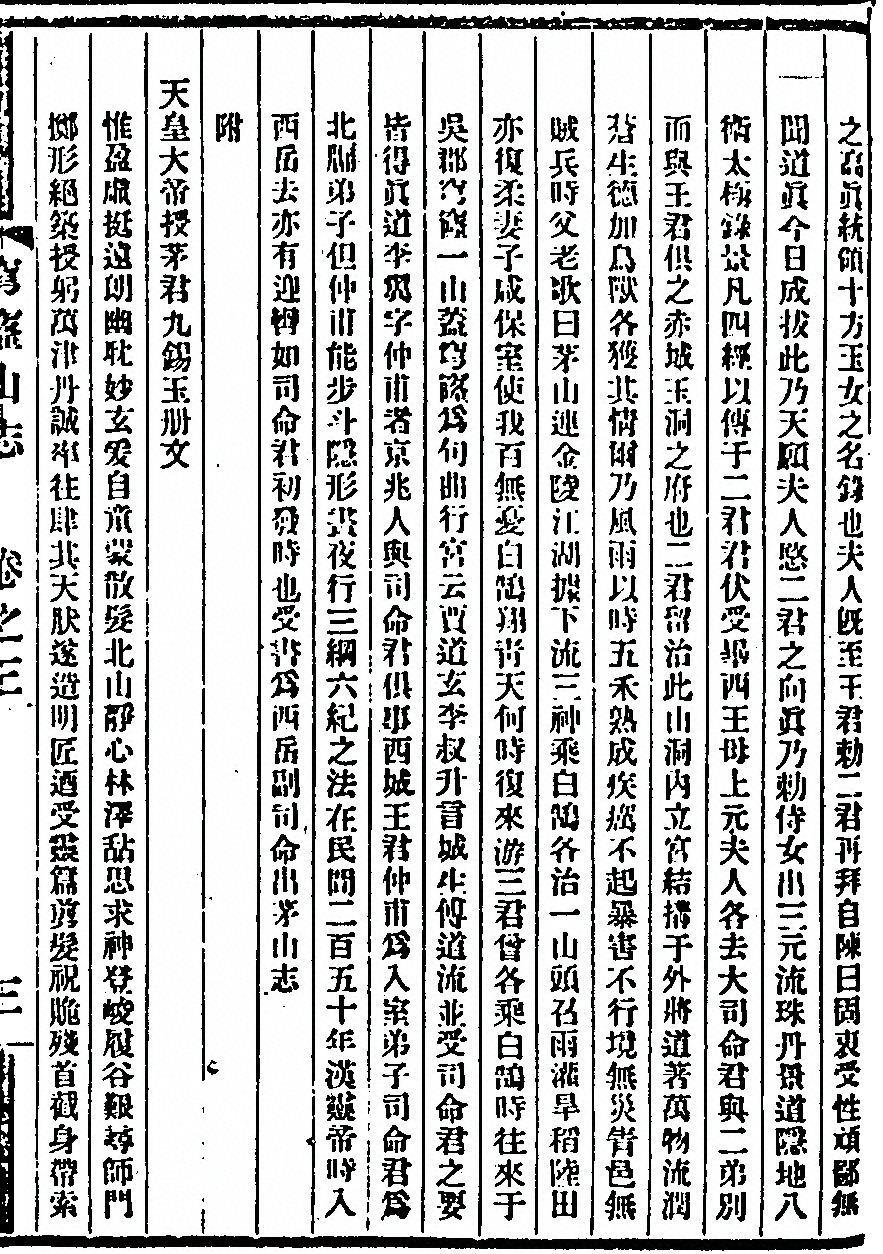 之高眞統領十方玉女之名錄也夫人旣至王君勅二君再拜自陳曰固衷受性頑鄙無
聞道眞今日成拔此乃天願夫人愍二君之向眞乃勅侍女出三元流珠丹景道隱地八
術太極錄景凡四經以傳于二君君伏受畢西王母上元夫人各去大司命君與二弟別
而與王君俱之赤城玉洞之府也二君留治此山洞內立宮結搆于外將道著萬物流潤
蒼生德加鳥獸各獲其情爾乃風雨以時五禾熟成疾癘不起暴害不行境無災眚邑無
賊兵時父老歌曰茅山連金陵江湖據下流三神乘白鵠各治一山頭召雨灌旱稻陸田
亦復柔妻子咸保室使我百無憂白鵠翔靑天何時復來游三君曾各乘白鵠時往來于
吳郡穹窿一山蓋穹窿爲句曲行宮云賈道玄李叔升言城生傅道流並受司命君之要
皆得眞道李翼字仲甫者京兆人與司命君俱事西城王君仲甫爲入室弟子司命君爲
北牖弟子但仲甫能步斗隱形晝夜行三綱六紀之法在民間二百五十年漢靈帝時入
西岳去亦有迎轡如司命君初發時也受書爲西岳副司命出茅山志
附
天皇大帝授茅君九錫玉册文
惟盈虛挺遠朗幽耽妙玄爰自童蒙散髮北山靜心林澤研思求神登峻履谷艱尋師門
擲形絕築授躬萬津丹誠率往肆其天狀遂造明匠迺受靈篇剪髮祝脆殘首截身帶索
穹窿山志 卷之三 三